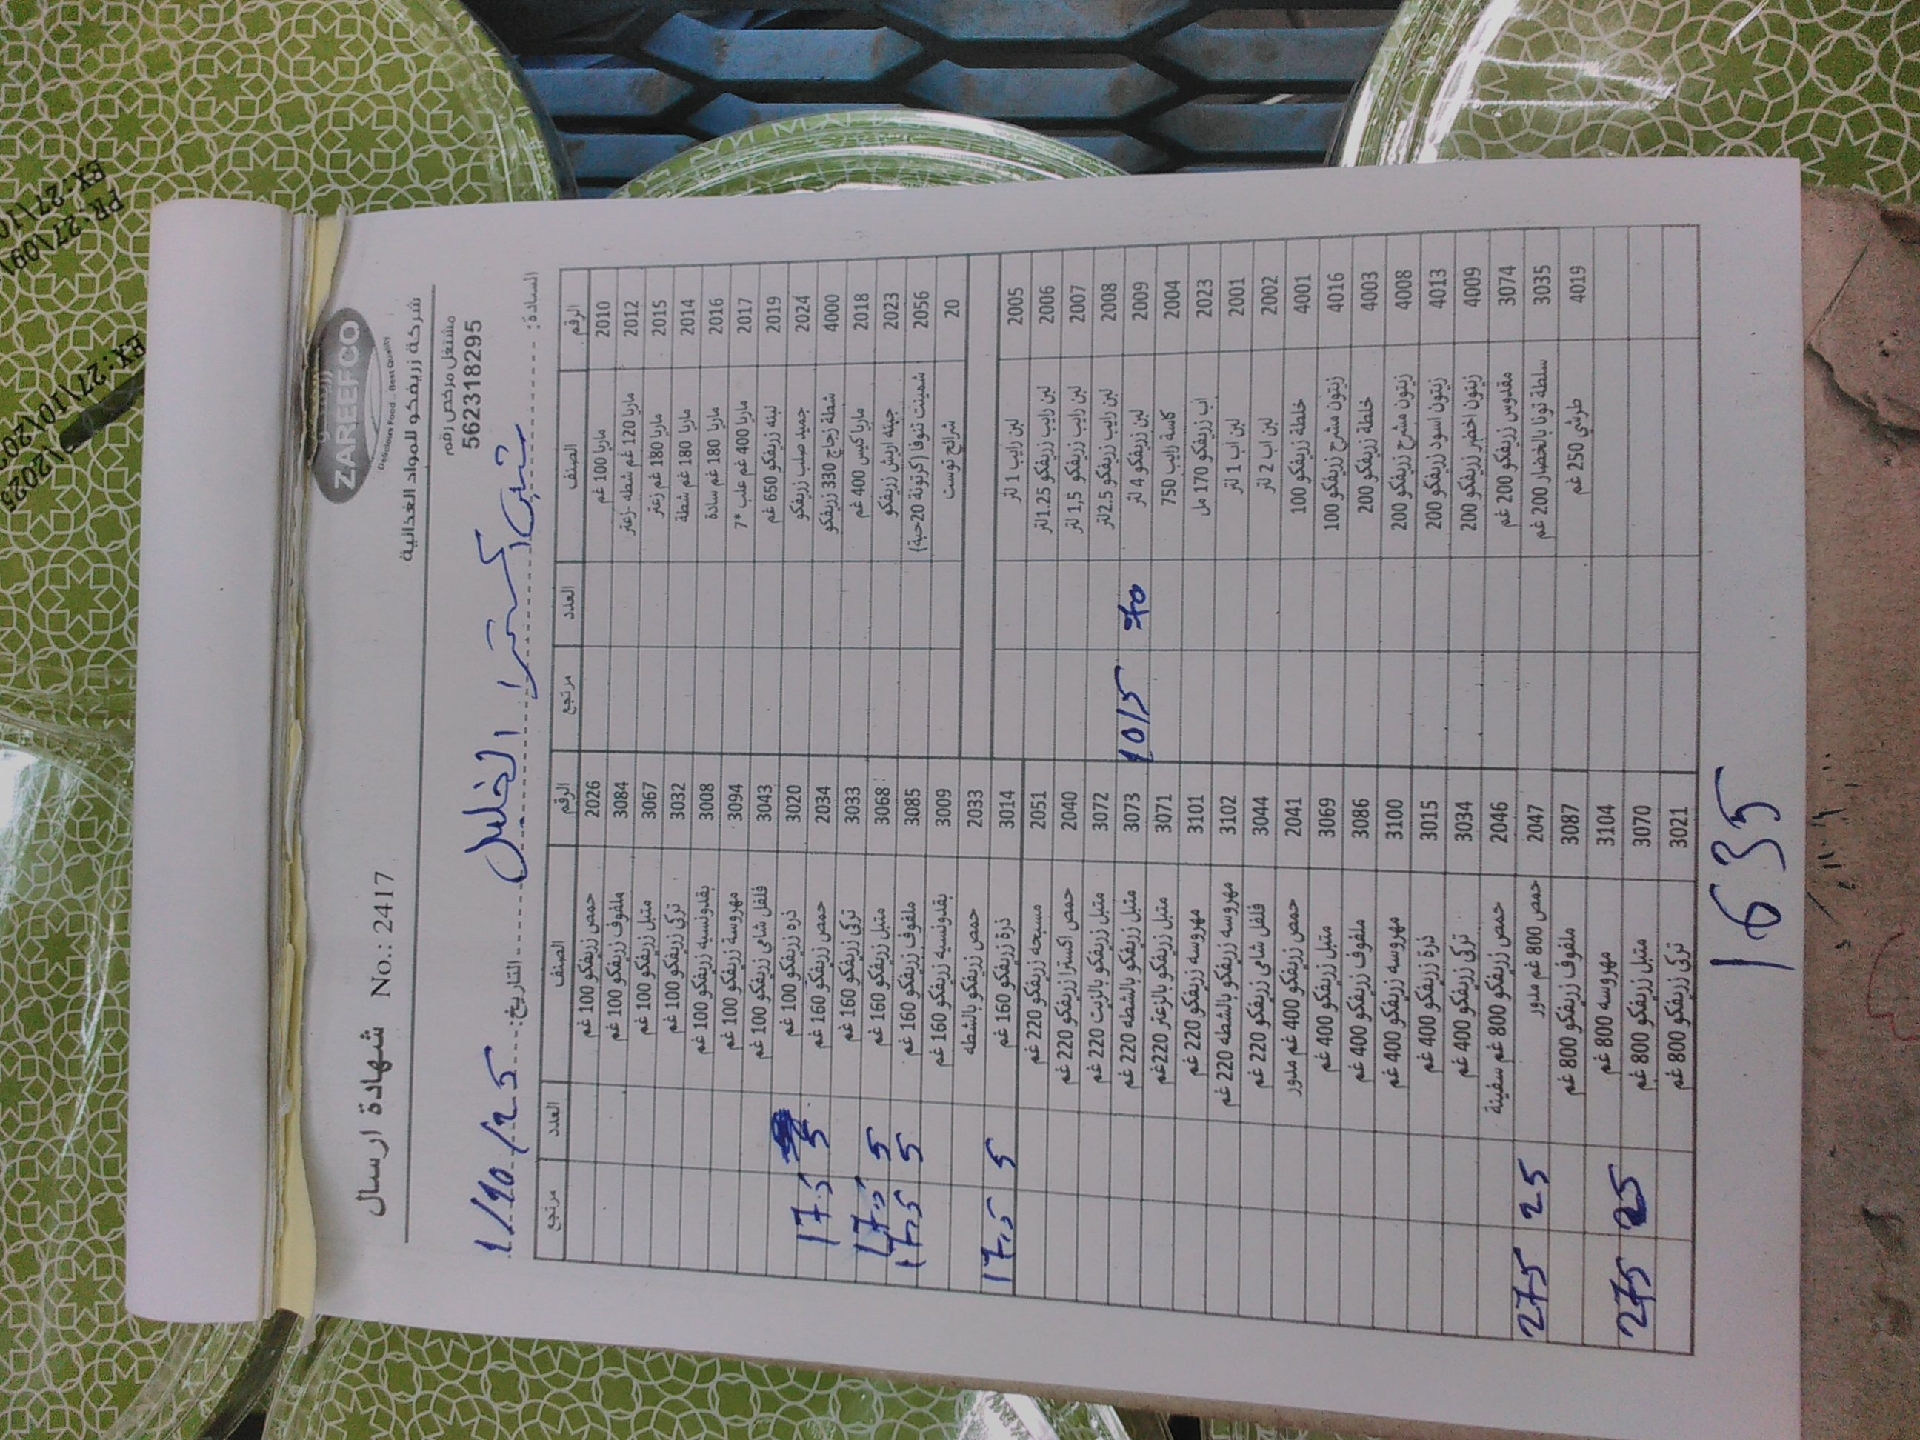 زريفكو
ZAREEFCO
Delicious Food . Best Quality
شركة زريفكو للمواد الغذائية
مشتغل مرخص رقم
562318295
شهادة ارسال No.: 2417
السادة: اكسترا الخليل التاريخ: 1/10/25
الرقم الصنف العدد مرتجع الرقم الصنف العدد مرتجع
2010 ماريا 100 غم 2026 حمص زريفكو 100 غم
2012 ماريا 120 غم شطه -زعتر 3084 ملفوف زريفكو 100 غم
2015 ماريا 180 غم زعتر 3067 متبل زريفكو 100 غم
2014 ماريا 180 غم شطة 3032 تركي زريفكو 100 غم
2016 ماريا 180 غم سادة 3008 بقدونسيه زريفكو 100 غم
2017 ماريا 400 غم علب *7 3094 مهروسة زريفكو 100 غم
2019 لبنه زريفكو 650 غم 3043 فلفل شامي زريفكو 100 غم
2024 جميد صلب زريفكو 3020 ذره زريفكو 100 غم
4000 شطة زجاج 330 زريفكو 2034 حمص زريفكو 160 غم 5 17.5
2018 ماريا كيس 400 غم 3033 تركي زريفكو 160 غم
2023 جبنه اريش زريفكو 3068 متبل زريفكو 160 غم 5 17.5
2056 شمينت تنوفا (كرتونة 20حبة) 3085 ملفوف زريفكو 160 غم 5 17.5
20 شرائح توست 3009 بقدونسيه زريفكو 160 غم
2033 حمص زريفكو بالشطه
2005 لبن رايب 1 لتر 3014 ذرة زريفكو 160 غم 5 17.5
2006 لبن رايب زريفكو 1.25لتر 2051 مسبحه زريفكو 220 غم
2007 لبن رايب زريفكو 1,5 لتر 2040 حمص اكسترا زريفكو 220 غم
2008 لبن رايب زريفكو 2.5لتر 3072 متبل زريفكو بالزيت 220 غم
2009 لبن زريفكو 4 لتر 70 1015 3073 متبل زريفكو بالشطه 220 غم
2004 كاسة رايب 750 3071 متبل زريفكو بالزعتر 220غم
2023 اب زريفكو 170 مل 3101 مهروسه زريفكو 220 غم
2001 لبن اب 1 لتر 3102 مهروسه زريفكو بالشطه 220 غم
2002 لبن اب 2 لتر 3044 فلفل شامي زريفكو 220 غم
4001 خلطة زريفكو 100 2041 حمص زريفكو 400 غم مدور
4016 زيتون مشرح زريفكو 100 3069 متبل زريفكو 400 غم
4003 خلطة زريفكو 200 3086 ملفوف زريفكو 400 غم
4008 زيتون مشرح زريفكو 200 3100 مهروسه زريفكو 400 غم
4013 زيتون اسود زريفكو 200 3015 ذرة زريفكو 400 غم
4009 زيتون اخضر زريفكو 200 3034 تركي زريفكو 400 غم
3074 مقدوس زريفكو 200 غم 2046 حمص زريفكو 800 غم سفينة
3035 سلطة تونا بالخضار 200 غم 2047 حمص 800 غم مدور 25 275
4019 طرشي 250 غم 3087 ملفوف زريفكو 800 غم
3104 مهروسه 800 غم
3070 متبل زريفكو 800 غم 25 275
3021 تركي زريفكو 800 غم
1635
PR:27\09\
EX:27\10
EX:27\10\2025